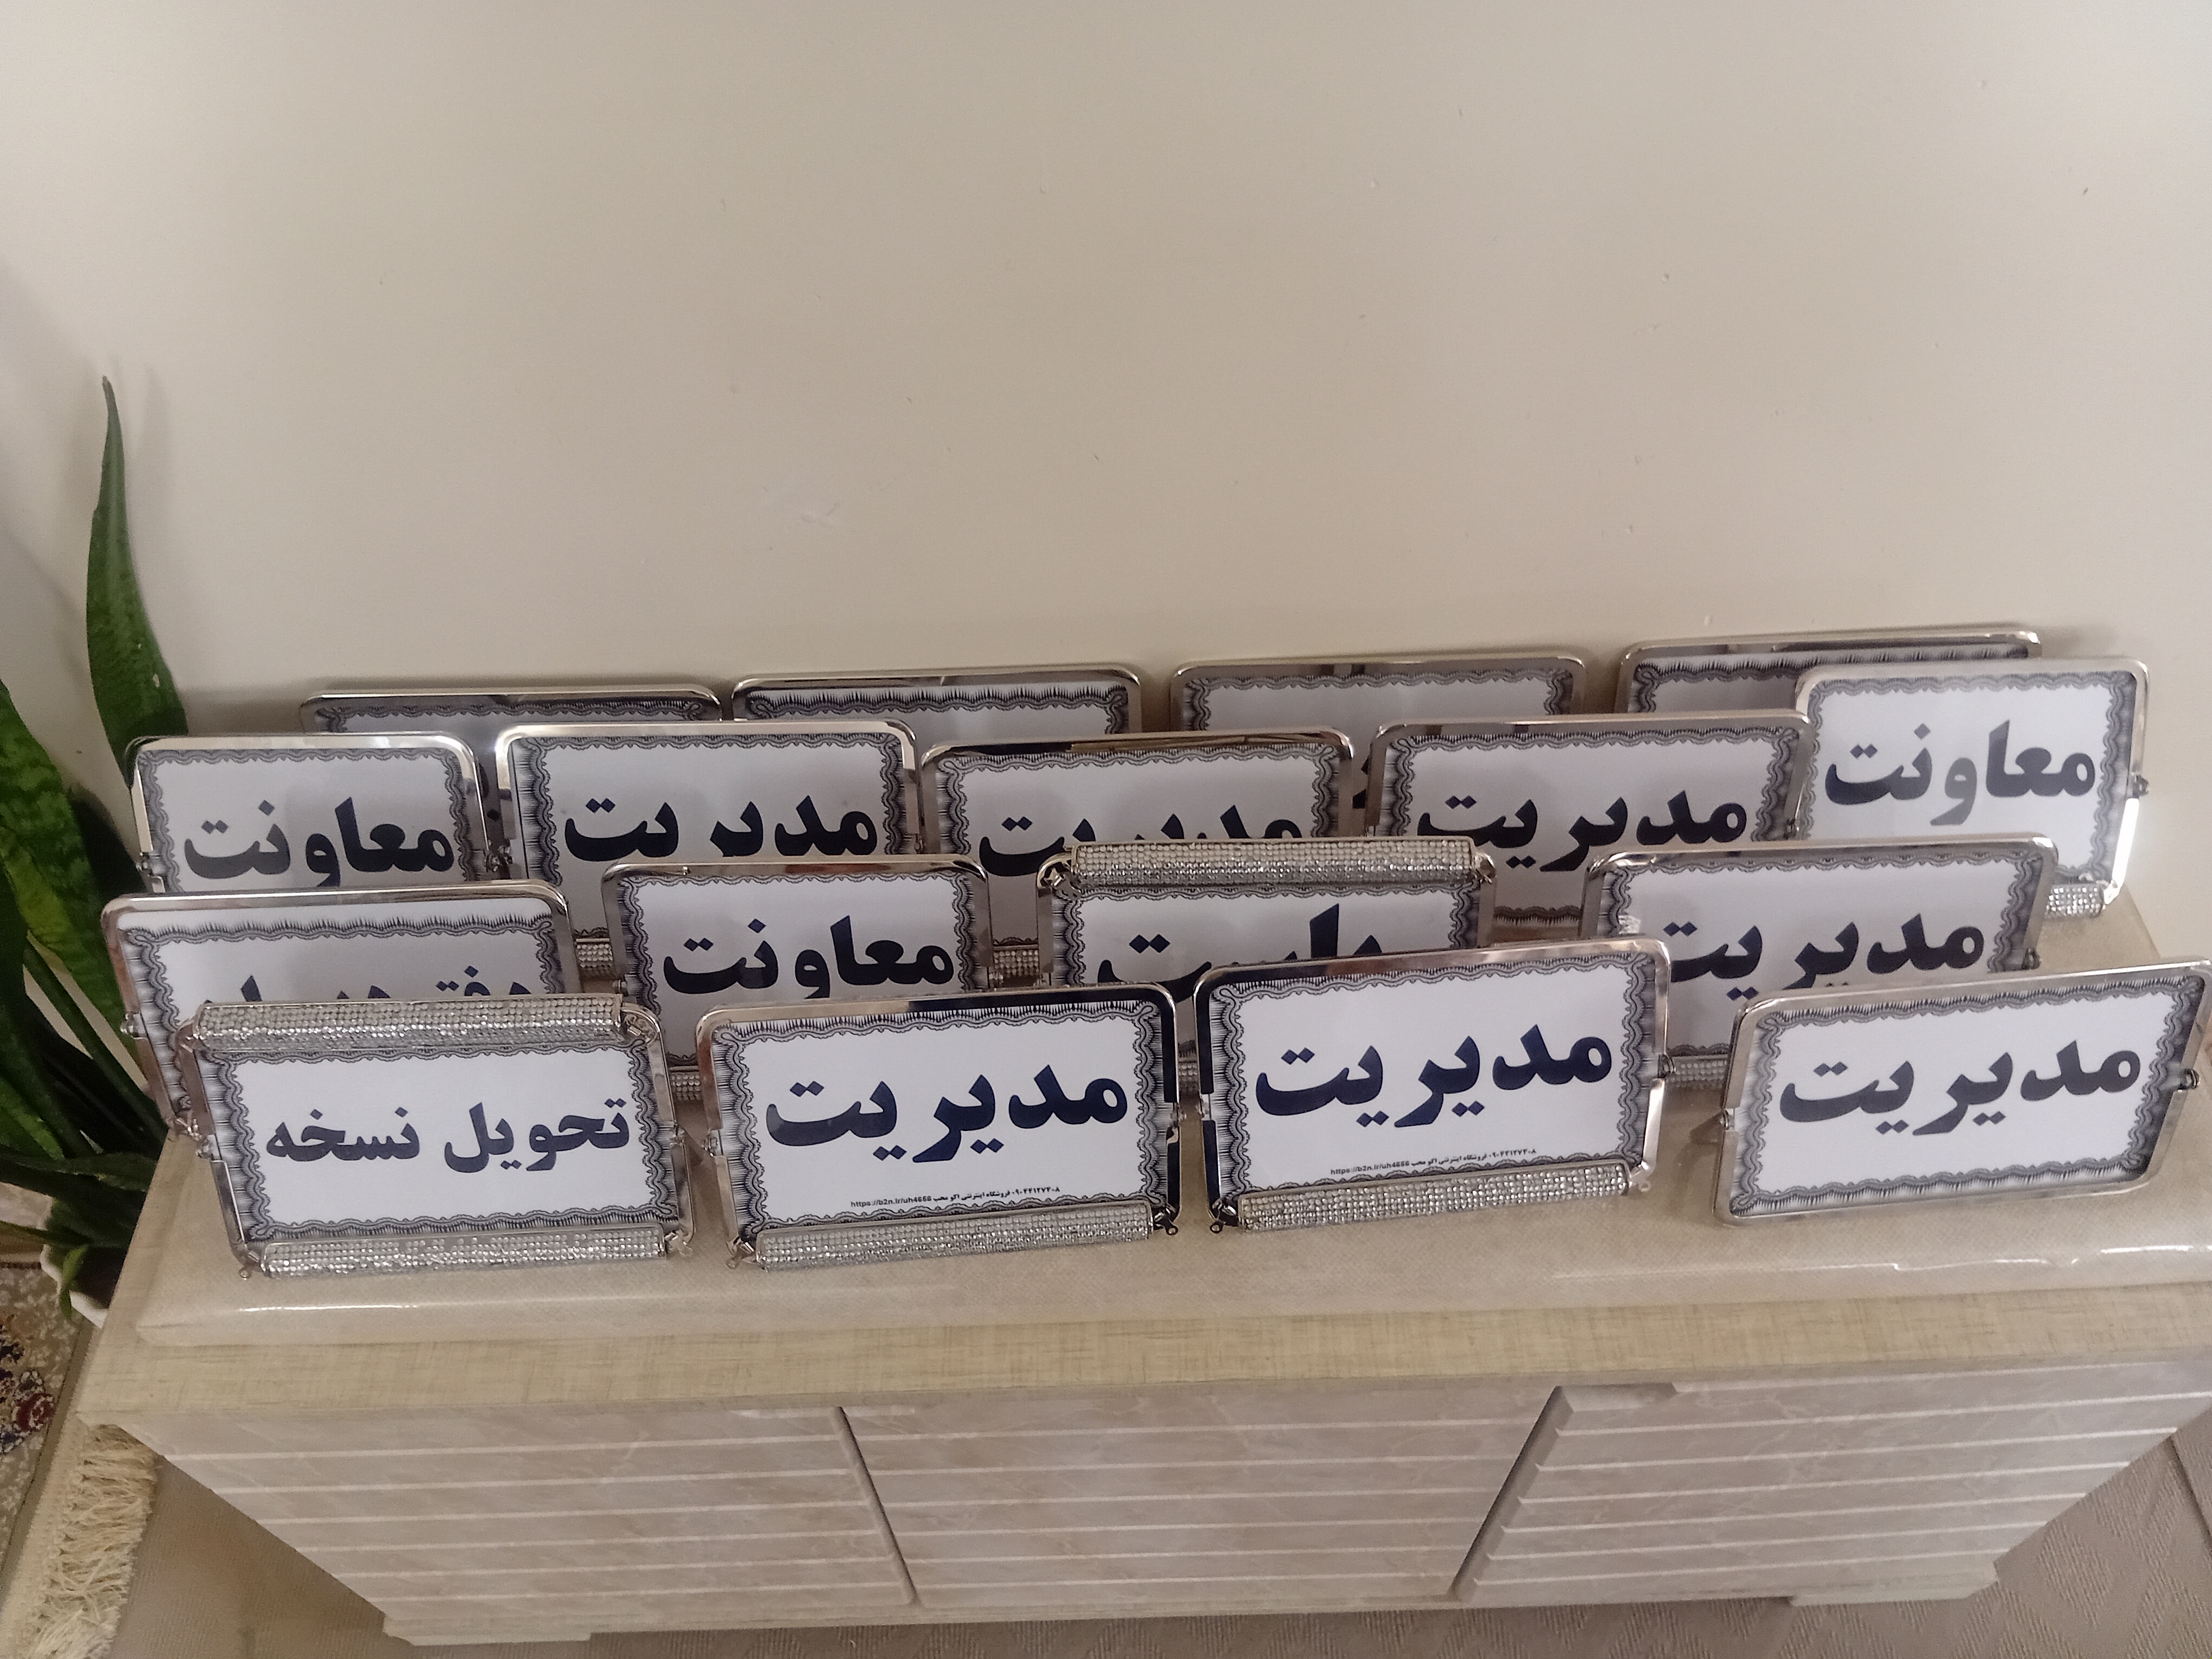 معاونت
مدیریت
مدیریت
مدیریت
معاونت
معاونت
مدیریت
تحویل نسخه
مدیریت
۰۹۰۴۴۱۲۷۳۰۸ فروشگاه اینترنتی اکو محب https://b2n.ir/uh4656
مدیریت
۰۹۰۴۴۱۲۷۳۰۸ فروشگاه اینترنتی اکو محب https://b2n.ir/uh4656
مدیریت